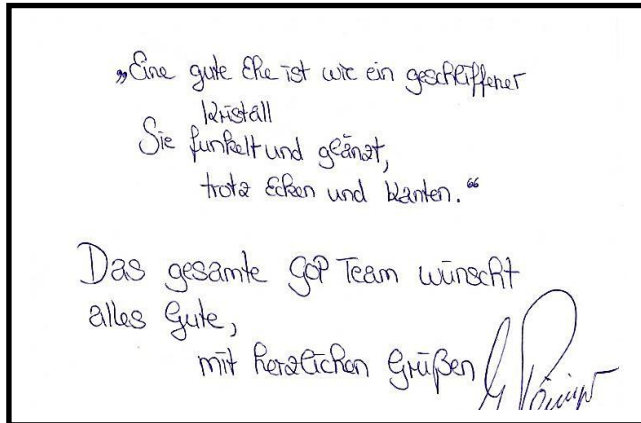 „Eine gute Ehe ist wie ein geschliffener
Kristall
Sie funkelt und glänzt,
trotz Ecken und Kanten.“
Das gesamte GOP Team wünscht
alles Gute,
mit herzlichen Grüßen